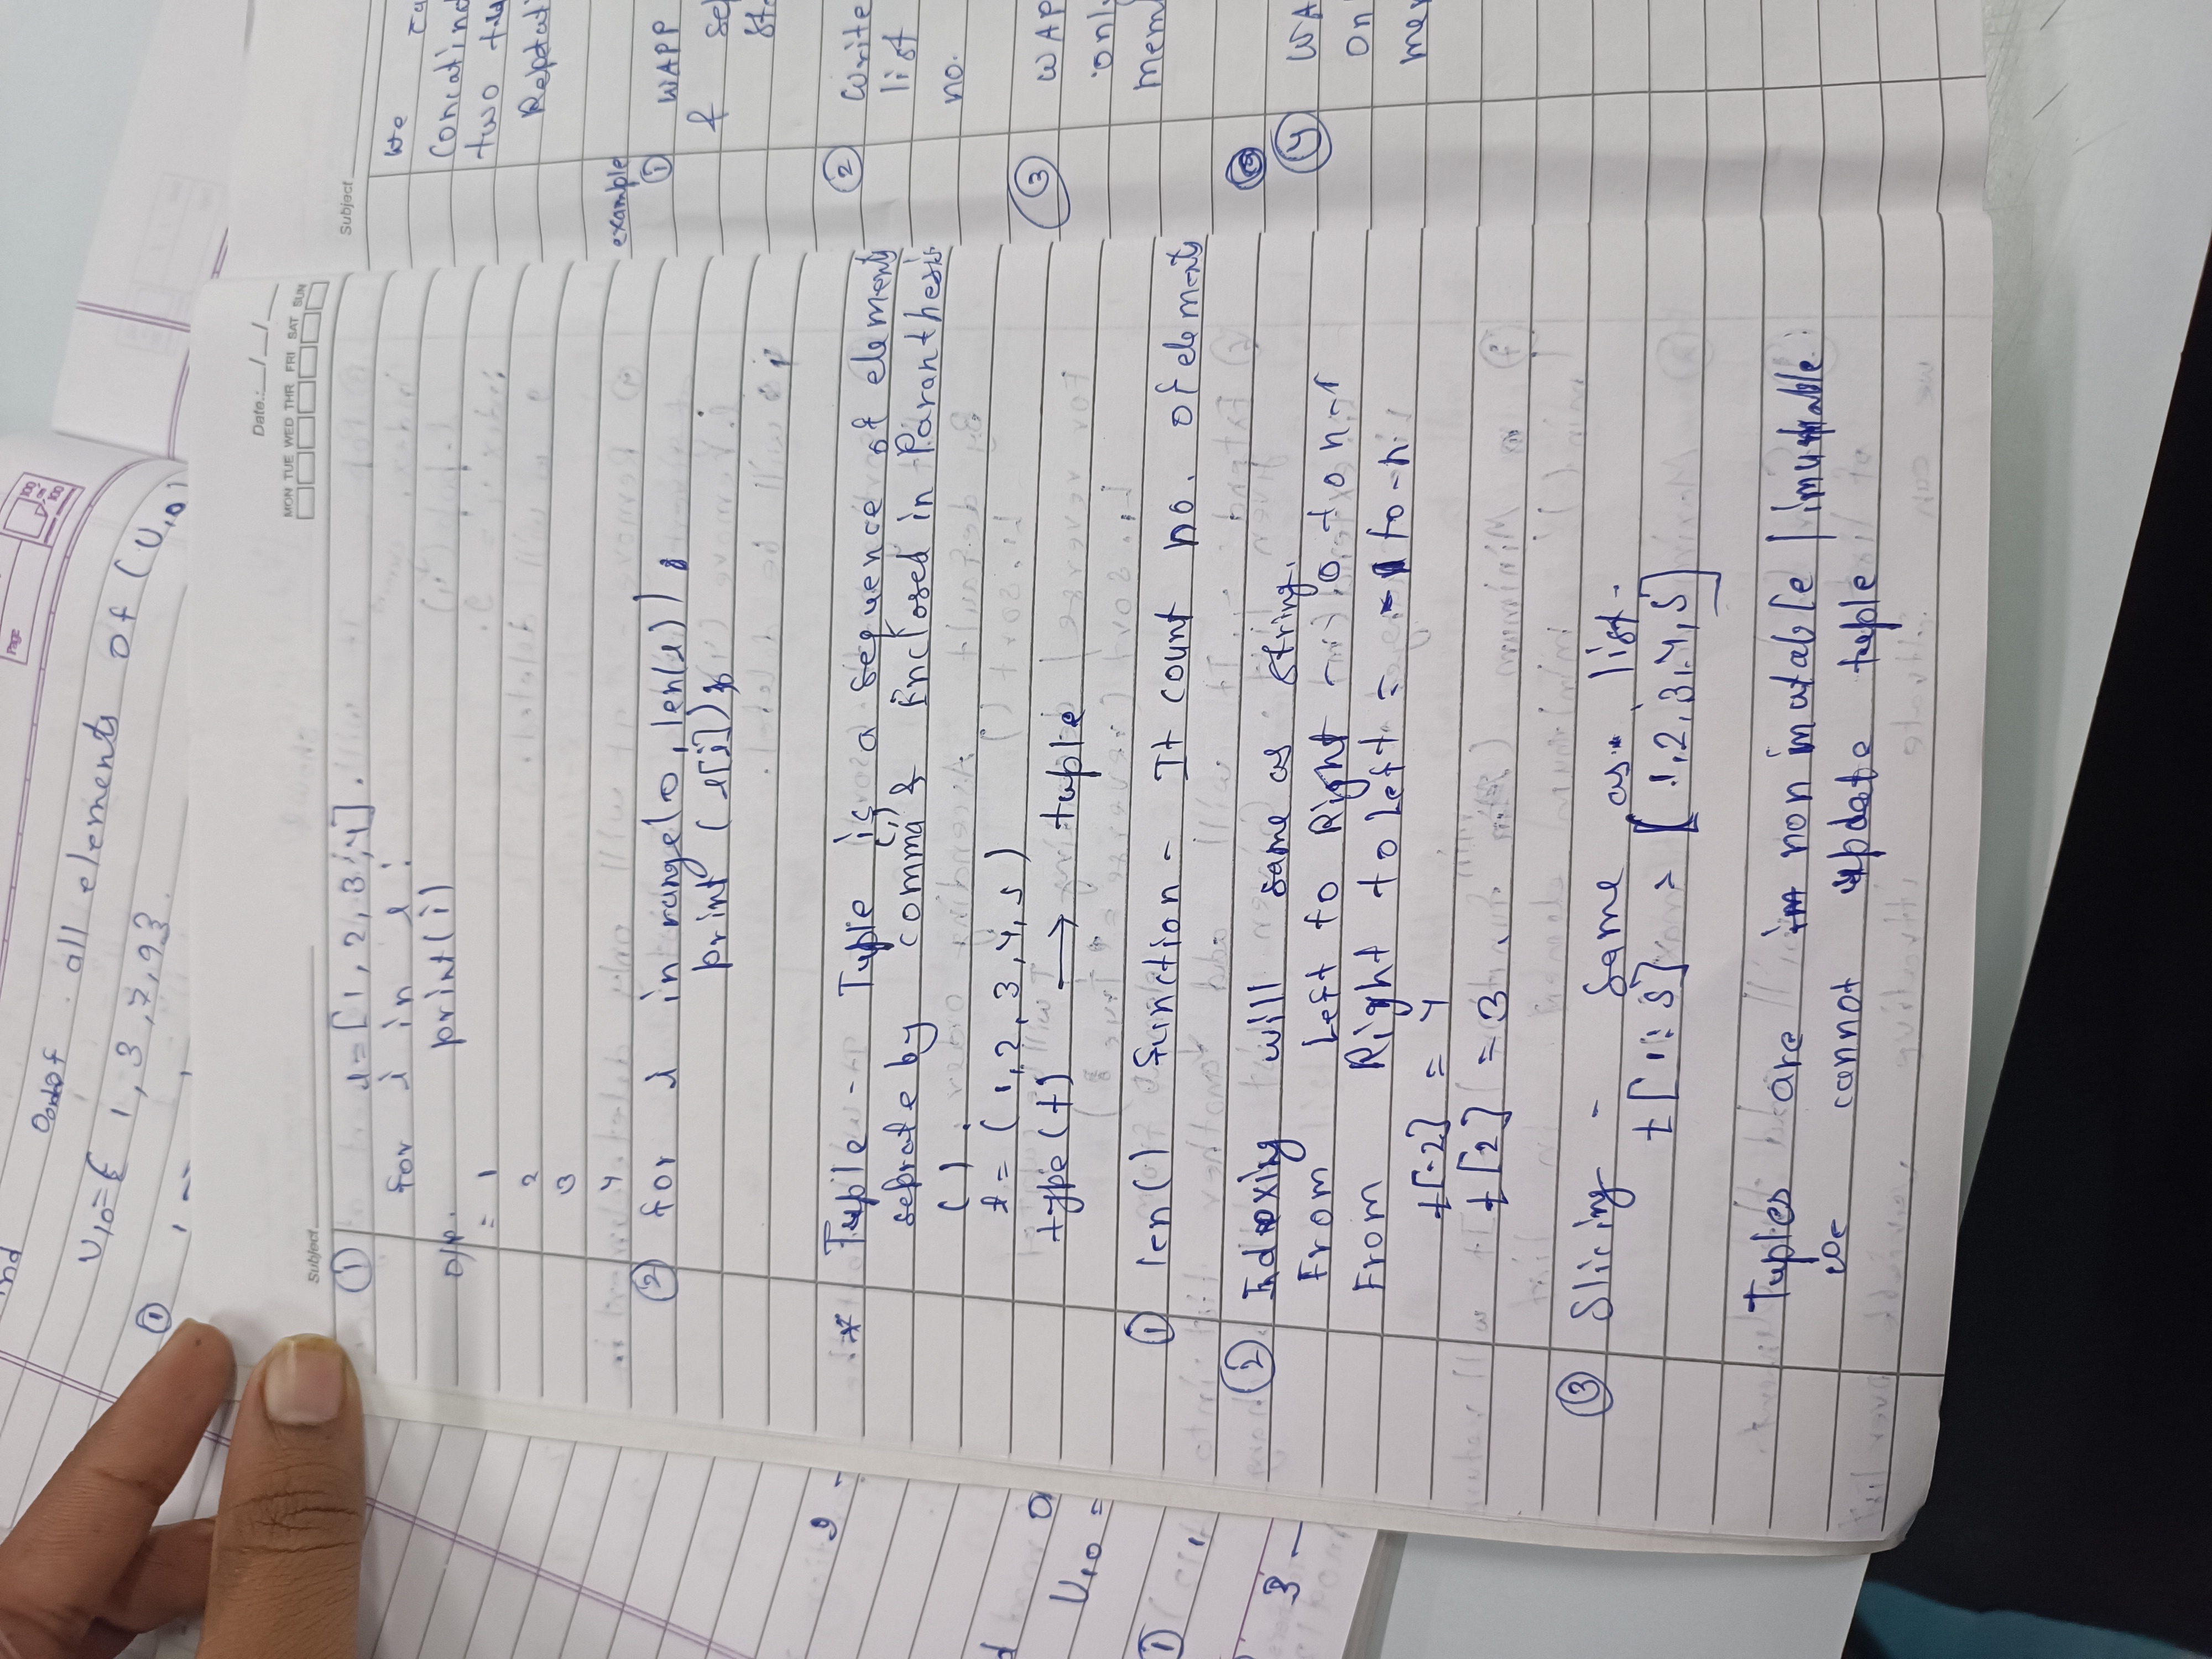 Subject
Date:__/__/__
MON TUE WED THR FRI SAT SUN
① l=[1,2,3,4].
for i in l:
print(i)
O/P.
= 1
2
3
4
② for i in range(0, len(l)):
print (l[i])
* Tuple - Tuple is a sequence of elements
seprate by comma(,) & Enclosed in Paranthesis
( ).
t = (1,2,3,4,5)
type(t) → tuple
① len() function - It count no. of elements
② Indexing will same as string.
From Left to Right - 0 to n-1
From Right to Left = -1 to -n.
t[-2] = 4
t[2] = 3
③ Slicing - Same as list.
t[1:5] = [1,2,3,4,5]
Tuples are non imutable | imutable.
We cannot update tuple
Subject
we
two
example
① WAPP
&
② Write
list
no.
③ WAP
only
mem
④ WA
on
me
Page
all elements of (U10)
U10={ 1,3,7,9}
①
U10 =
①
3 -